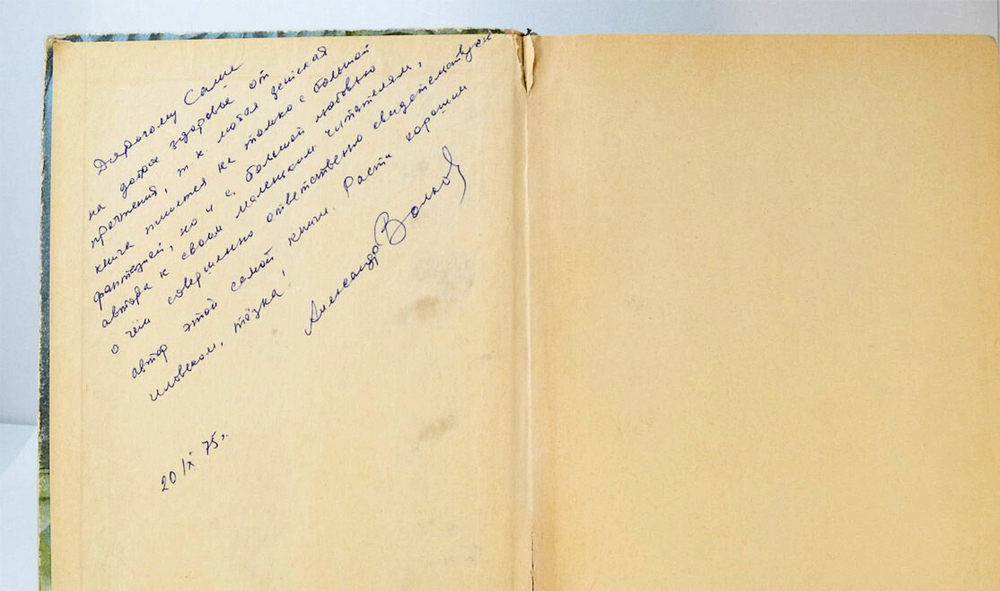 Дорогому Саше
на долгое здоровье от
прочтения, т. к. любая детская
книга пишется не только с большой
фантазией, но и с большой любовью
автора к своим маленьким читателям,
о чём совершенно ответственно свидетельствует
автор этой самой книги. Расти хорошим
человеком, тёзка!
Александр Волков
20/IX 75 г.